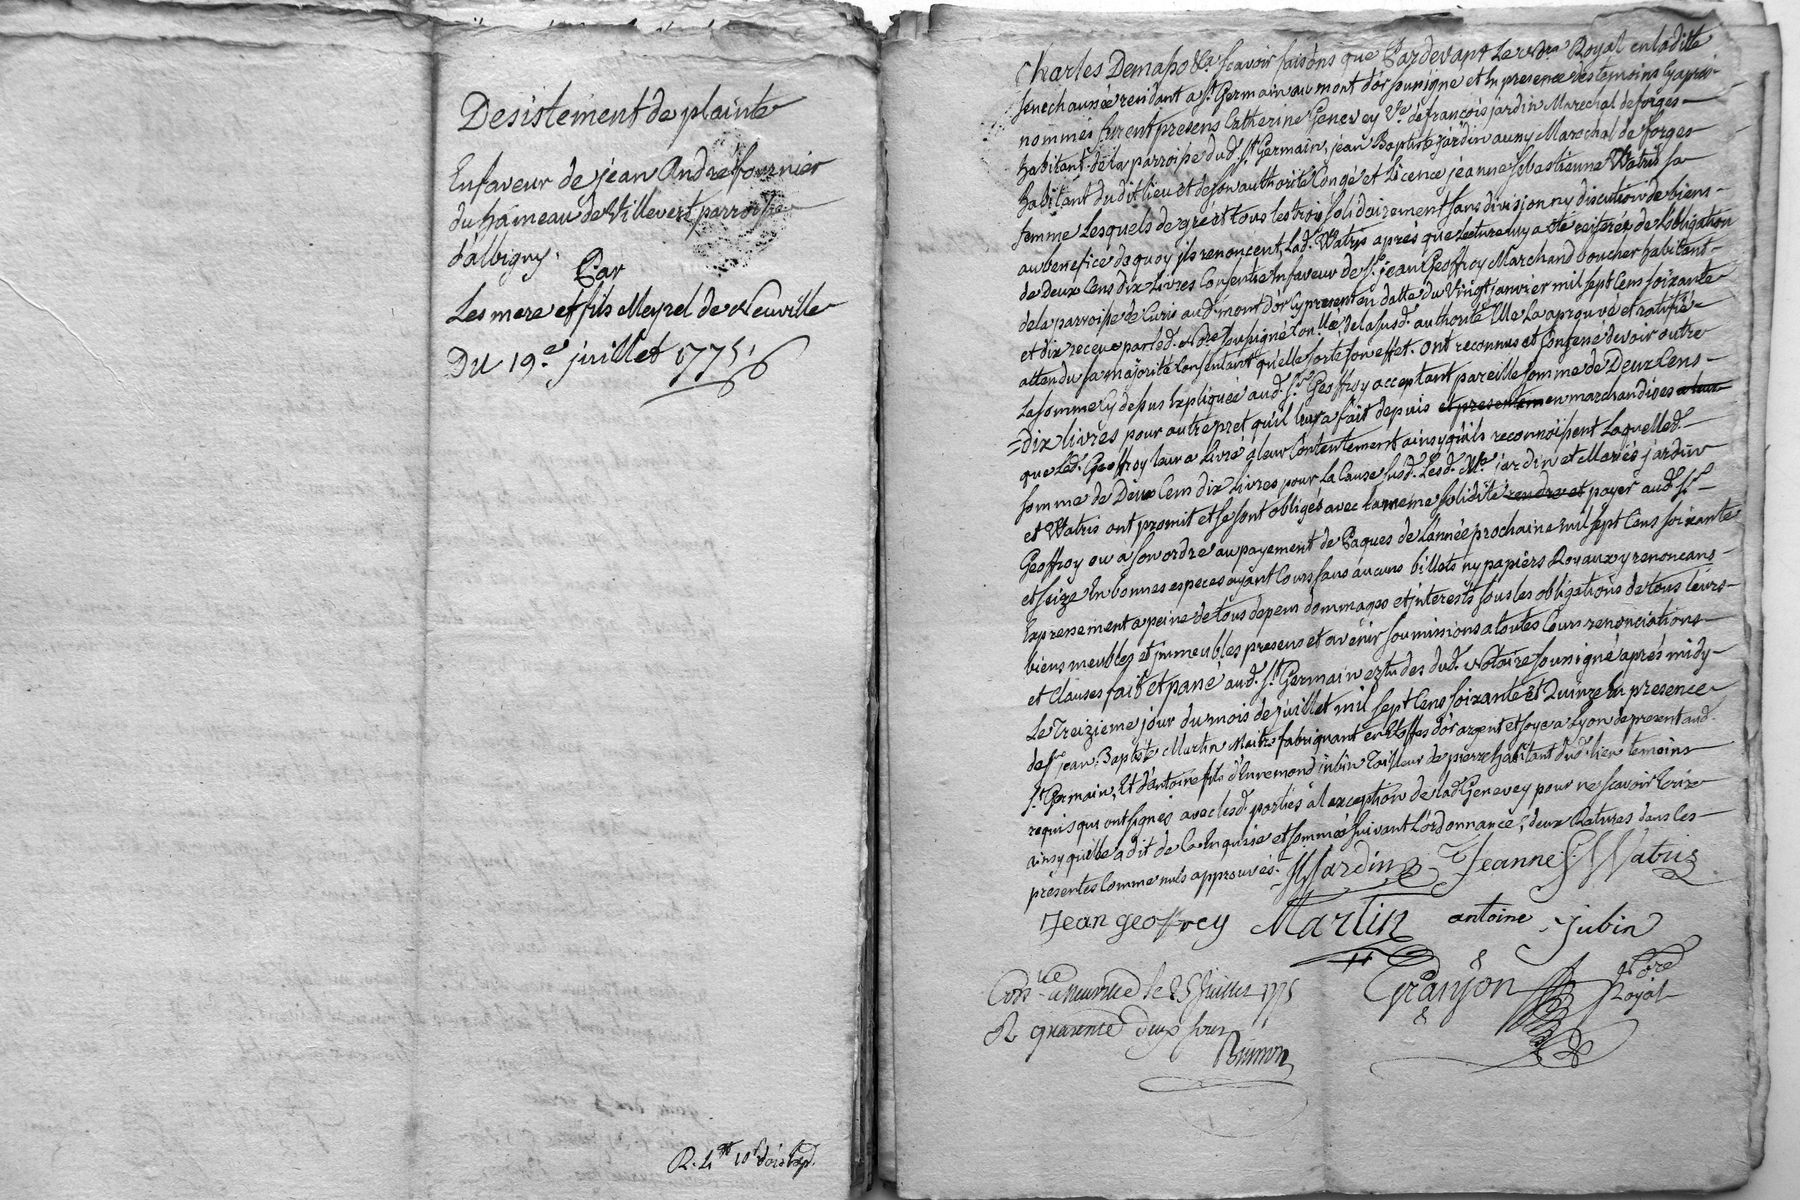 Desistement de plainte
En faveur de jean André fournier
du hameau de Villevert parroisse
d'albigny.
Par
Les mere et fils Meyrel de Neuville
Du 19.e juillet 1775
R. 4.# 10.s
Charles Demasso &.a scavoir faisons que Pardevant Le No.re Royal en laditte
senechaussée residant a S.t Germain au mont d'or soussigné et En presence des temoins cy après
nommés furent presens Catherine Genevey V.e de françois jardin Marechal de forges
habitant de la parroisse dud. S.t Germain, jean Baptiste jardin aussy Marechal de forges
habitant dudit lieu et de son authorité Congé et Licence jeanne Sebastienne Watris sa
femme Lesquels de gré et tous les trois solidairement sans division ny discution de biens
au benefice de quoy ils renoncent, Lad. Watris après que Lecture luy a été reiterée de L'obligation
de Deux Cens dix Livres Consentie En faveur de S.r jean Geoffroy Marchand boucher habitant
de la parroisse de Curis aud. mont d'or Cy present en datte du Vingt janvier mil sept Cens soixante
et dix receue par led. No.re soussigné Con.llée de la susd. authorité Elle La aprouvé et ratiffié
attendu sa majorité Consentant qu'elle sorte son effet. Ont reconnus et Confessé devoir outre
La somme Cy dessus Expliquée aud. S.r Geoffroy acceptant pareille somme de Deux Cens
dix livres pour autre pret qu'il leur a fait depuis et presentem en marchandises a leur
que Led. Geoffroy leur a Livré a leur Contentement ainsy qu'ils reconnoissent Laquelled.
somme de Deux Cens dix Livres pour La Cause susd. Lesd. V.e jardin et Mariés jardin
et Watris ont promit et se sont obligés avec la meme solidité rendre et payer aud. S.r
Geoffroy ou a son ordre au payement de Paques de L'année prochaine mil sept Cens soixante
et seize En bonnes especes ayant Cours sans aucuns billets ny papiers Royaux y renoncans
Expressement a peine de tous depens dommages et interests sous les obligations de tous leurs
biens meubles et immeubles presens et avenir soumissions a toutes Cours renonciations
et Clauses fait et passé aud. S.t Germain ez etudes dud. Notaire soussigné après midy
Le Treizieme jour du mois de juillet mil sept Cens soixante et Quinze En presence
de S.r jean Baptiste Martin Maitre fabriquant en Etoffes d'or argent et soye a Lyon de present aud.
S.t Germain, Et d'antoine fils d'Ennemond jubin Tailleur de pierre habitant dud. lieu temoins
requis qui ont signés avec lesd. parties a l'exception de lad. Genevey pour ne scavoir Ecrire
ainsy qu'elle a dit de Ce Enquise et sommée suivant L'ordonnance, deux Ratures dans les
presentes Comme nuls approuvés.
JBJardin Jeanne S. Watris
Jean geoffrey Martin antoine Jubin
Con.lé a Neuville le 25 Juillet 1775
R quarente deux sous
Granjon No.re Royal